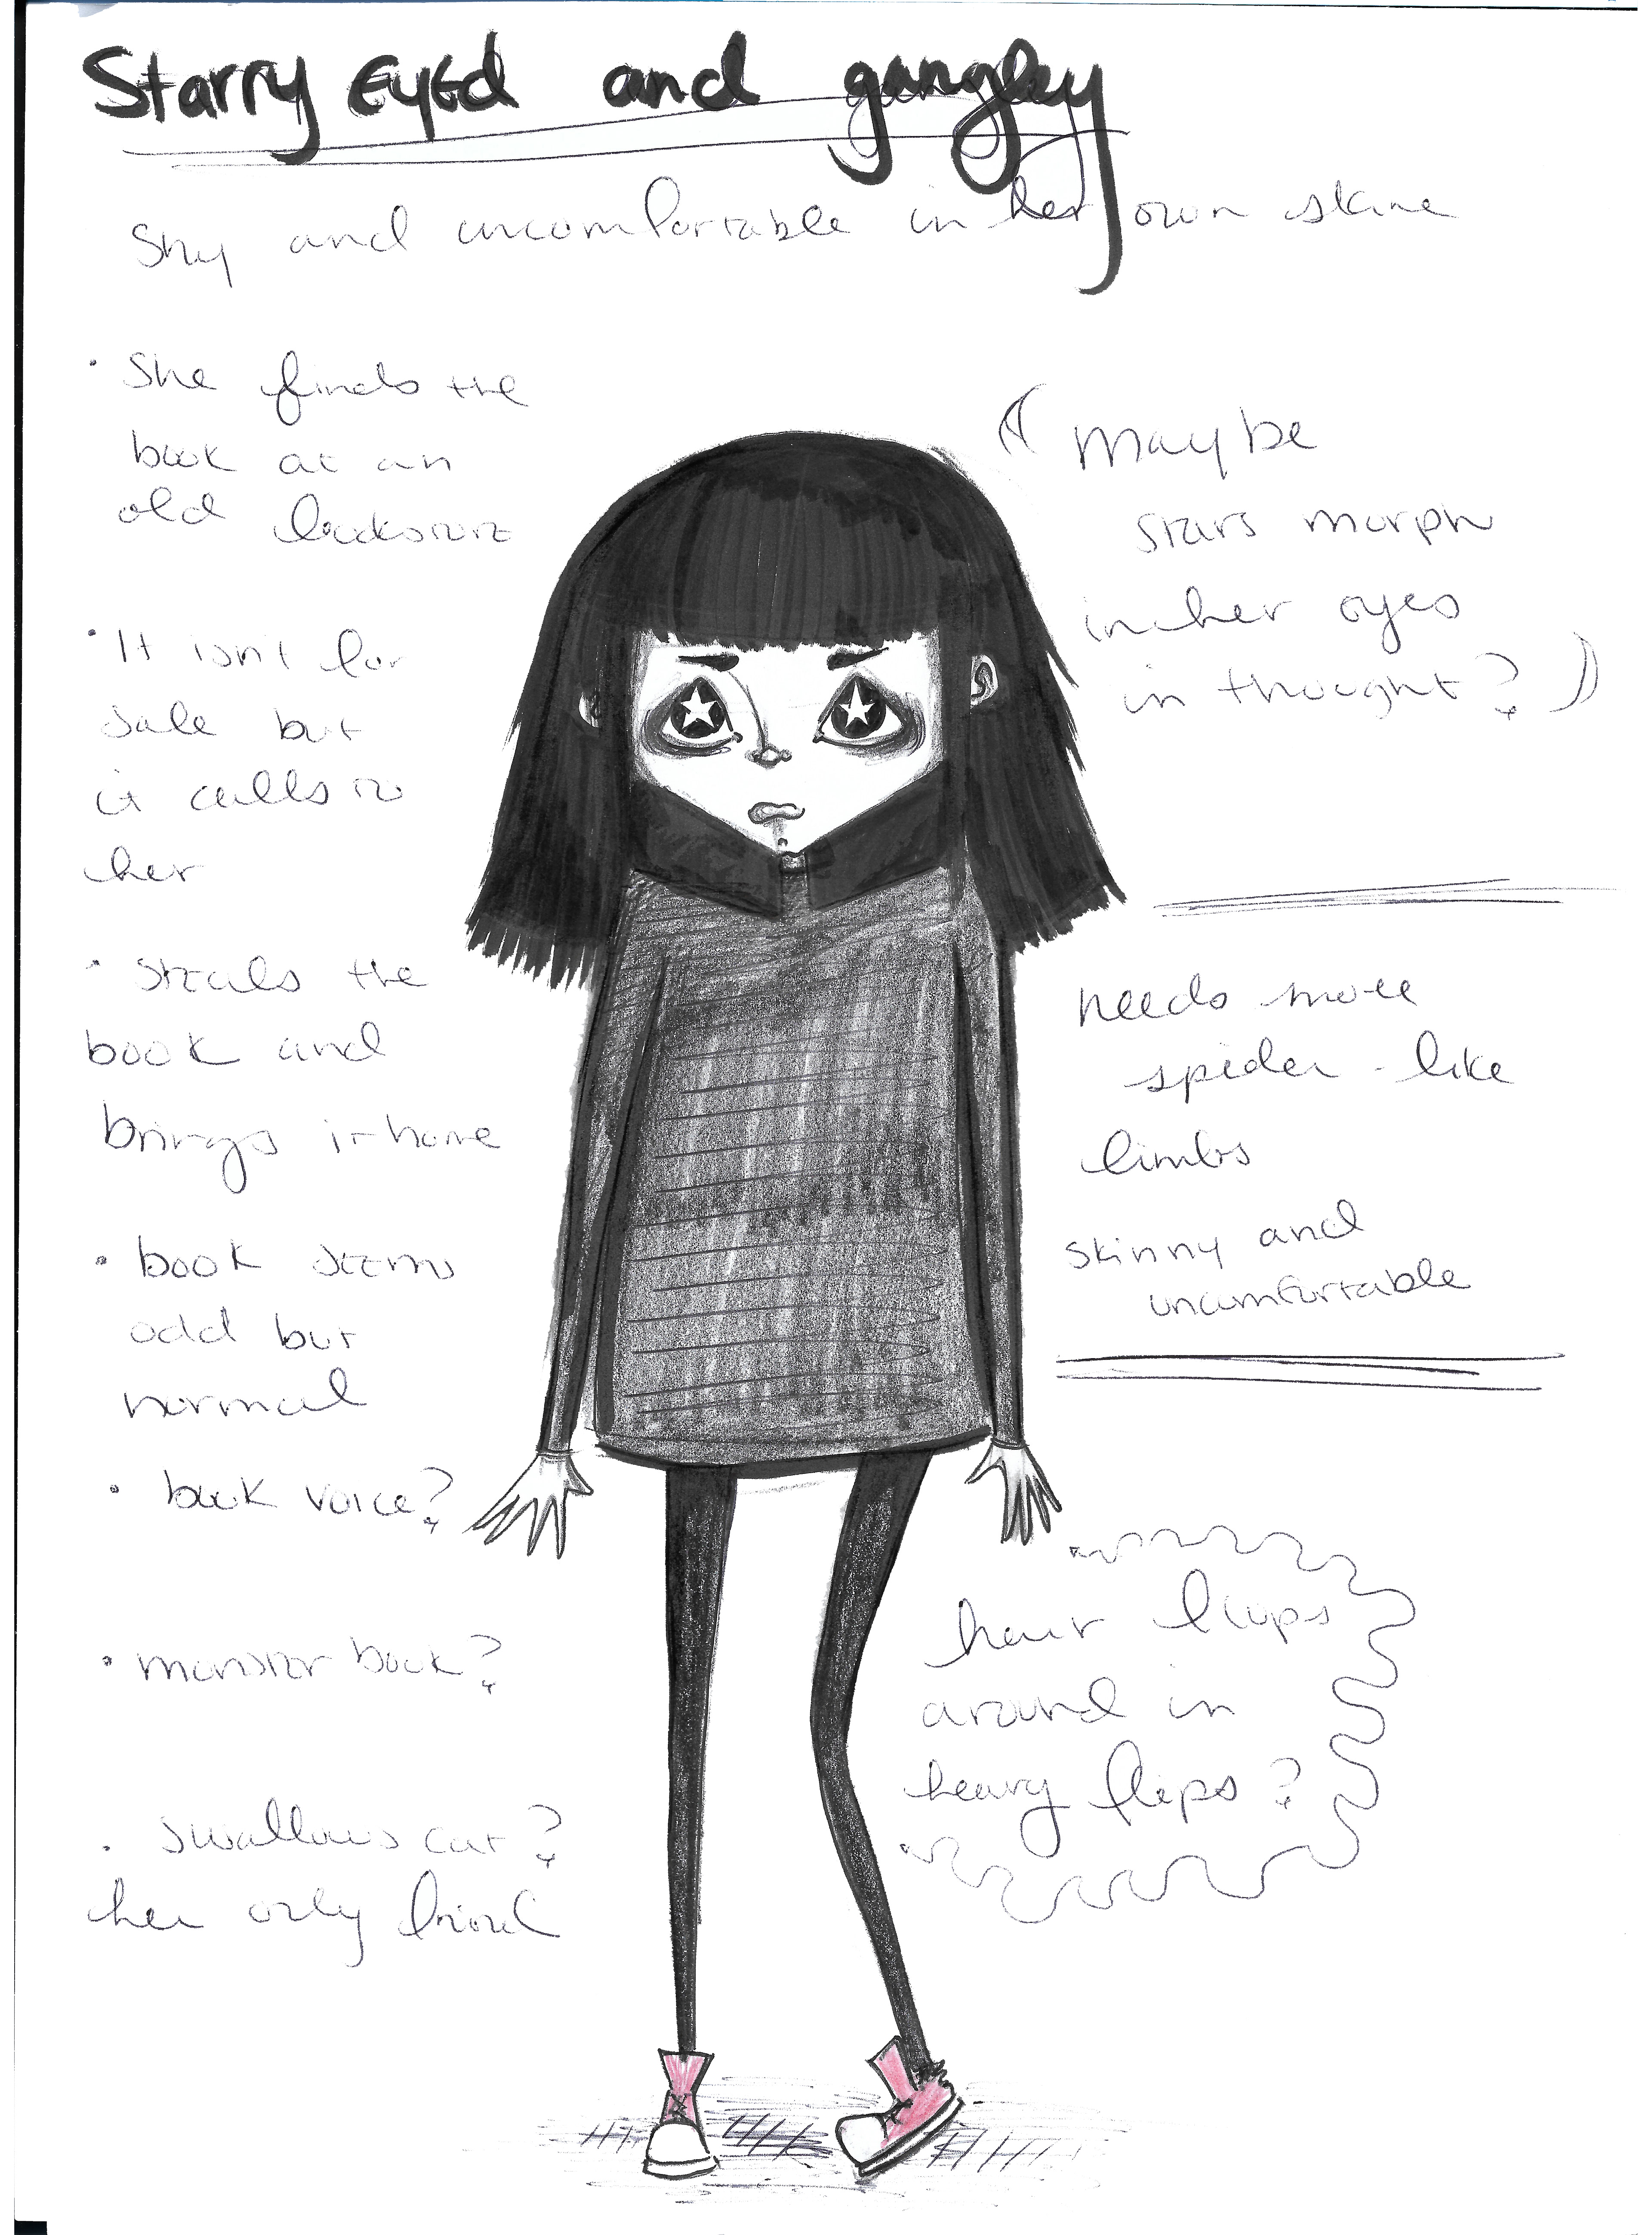 Starry EyEd and gangley
Shy and uncomfortable in her own skine
• She finds the
book at an
old bookstore
• It isn't for
sale but
it calls to
her
• Steals the
book and
brings it home
• book seems
odd but
normal
• book voice?
• monster book?
• swallows cat?
her only friend
(( Maybe
stars morph
in her eyes
in thought? ))
needs more
spider-like
limbs
skinny and
uncomfortable
hair flops
around in
heavy flips?